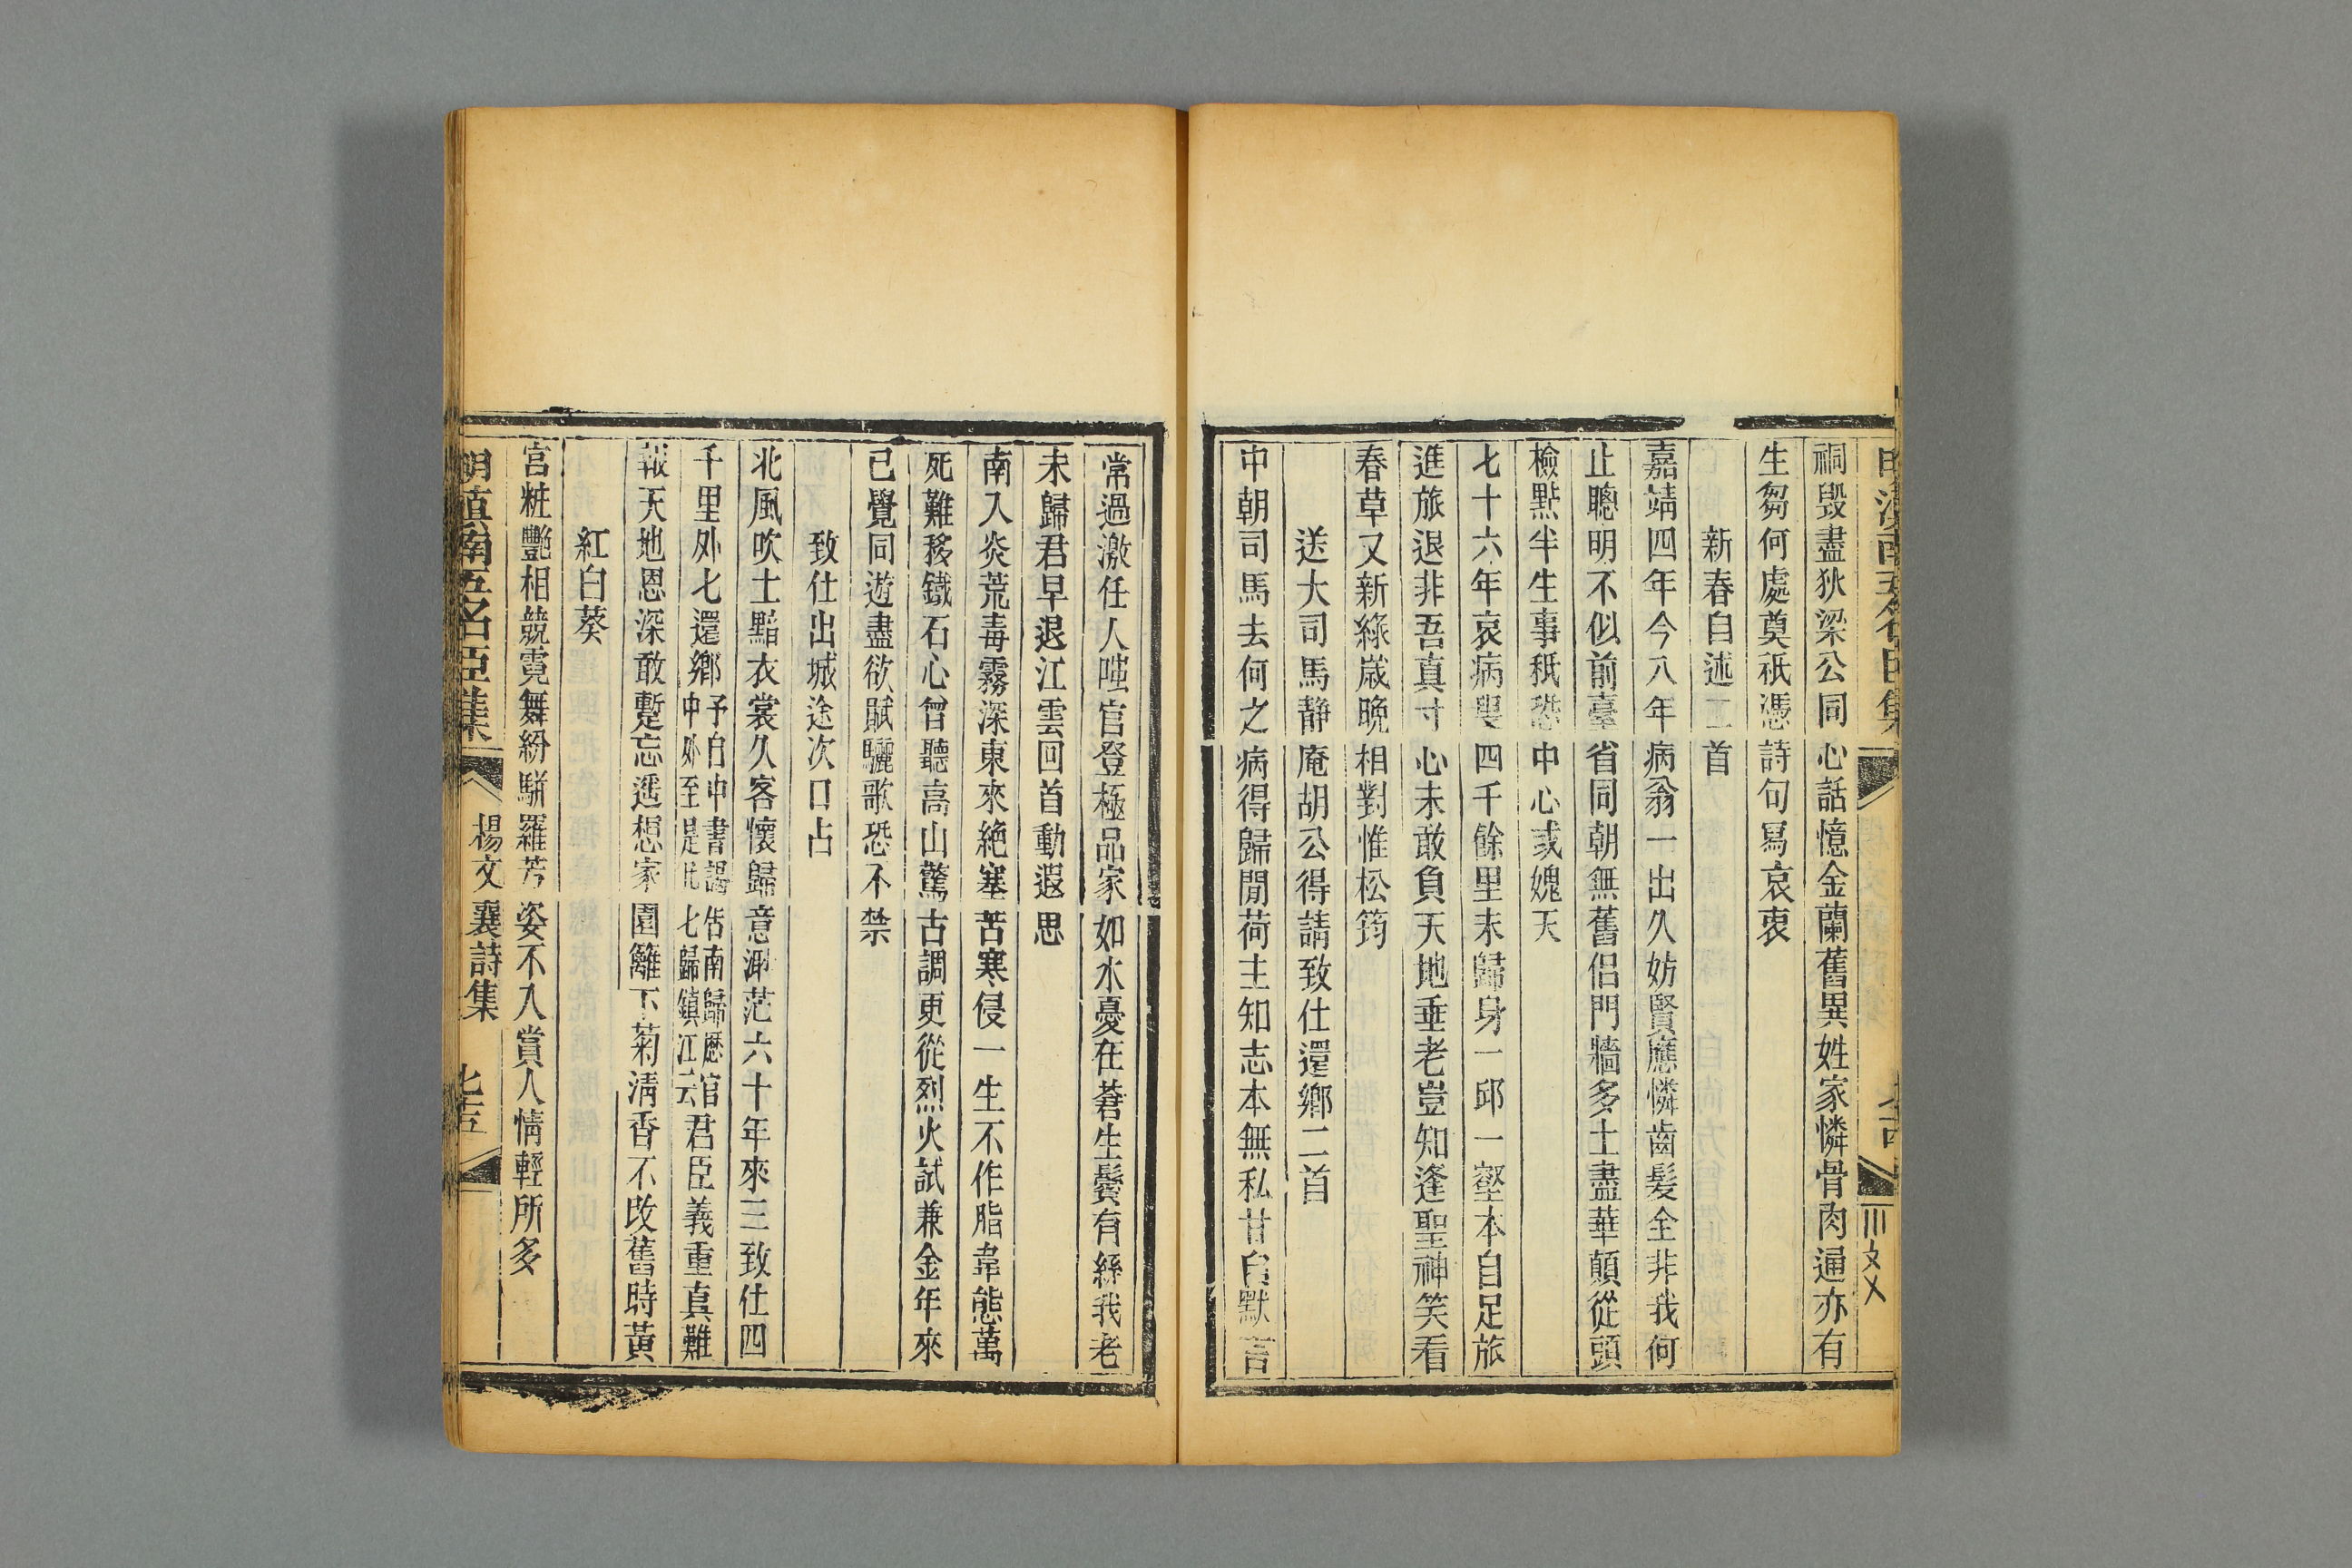 祠毀盡狄梁公同心話憶金蘭舊異姓家憐骨肉通亦有
生芻何處奠祇憑詩句寫哀衷
新春自述二首
嘉靖四年今八年病翁一出久妨賢應憐齒髮全非我何
止聰明不似前臺省同朝無舊侶門牆多士盡華顛從頭
檢點半生事秖恐中心或媿天
七十六年哀病叟四千餘里未歸身一邱一壑本自足旅
進旅退非吾真寸心未敢負天地垂老豈知逢聖神笑看
春草又新綠歲晚相對惟松筠
送大司馬靜庵胡公得請致仕還鄉二首
中朝司馬去何之病得歸閒荷主知志本無私甘自默言
常過激任人嗤官登極品家如水憂在蒼生鬢有絲我老
未歸君早退江雲回首動遐思
南入炎荒毒霧深東來絶塞苦寒侵一生不作脂韋態萬
死難移鐵石心曾聽高山驚古調更從烈火試兼金年來
已覺同遊盡欲賦驪歌恐不禁
致仕出城途次口占
北風吹土黯衣裳久客懷歸意渺茫六十年來三致仕四
千里外七還鄉予自中書謁告南歸歷官中外至是凡七歸鎮江云君臣義重真難
報天地恩深敢蹔忘遥想家園籬下菊清香不改舊時黃
紅白葵
宮粧艷相競霓舞紛駢羅芳姿不入賞人情輕所多
明滇南五名臣集 楊文襄詩集 七十五